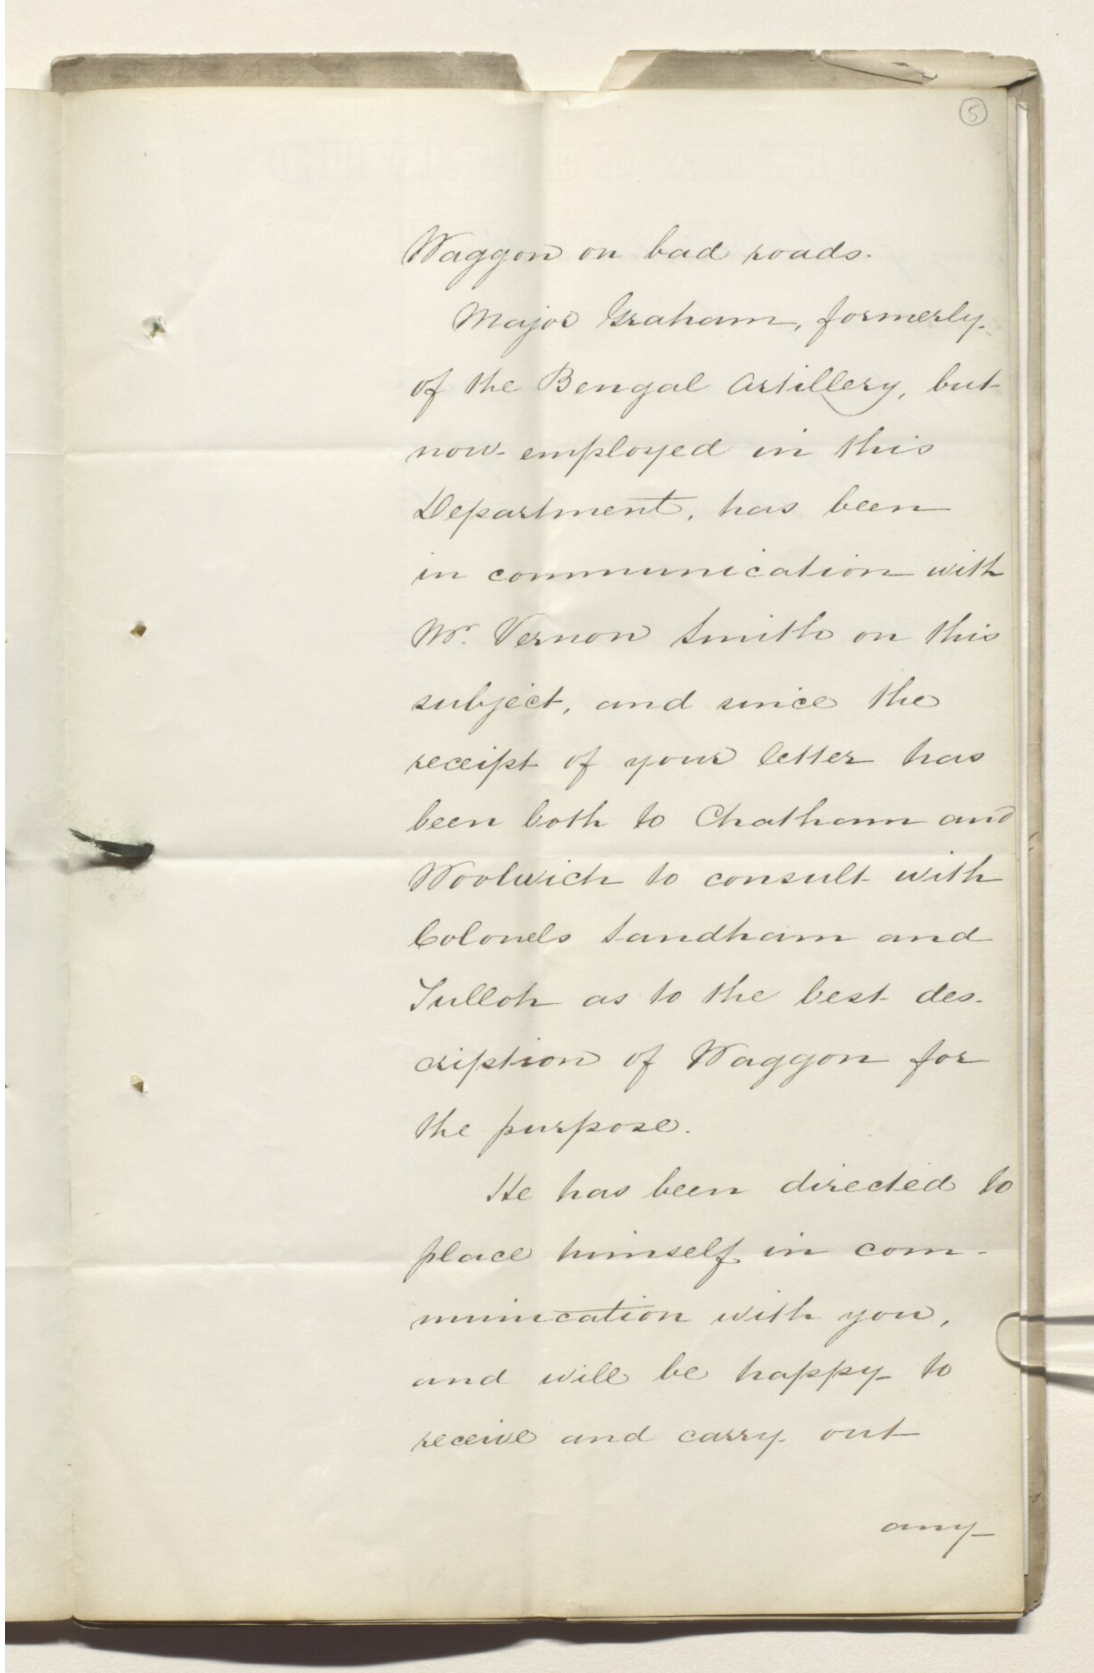 5
Waggon on bad roads.
Major Graham, formerly
of the Bengal Artillery, but
now employed in this
Department, has been
in communication with
Mr. Vernon Smith on this
subject, and since the
receipt of your letter has
been both to Chatham and
Woolwich to consult with
Colonels Sandham and
Tulloh as to the best des-
cription of Waggon for
the purpose.
He has been directed to
place himself in com-
munication with you,
and will be happy to
receive and carry out
any